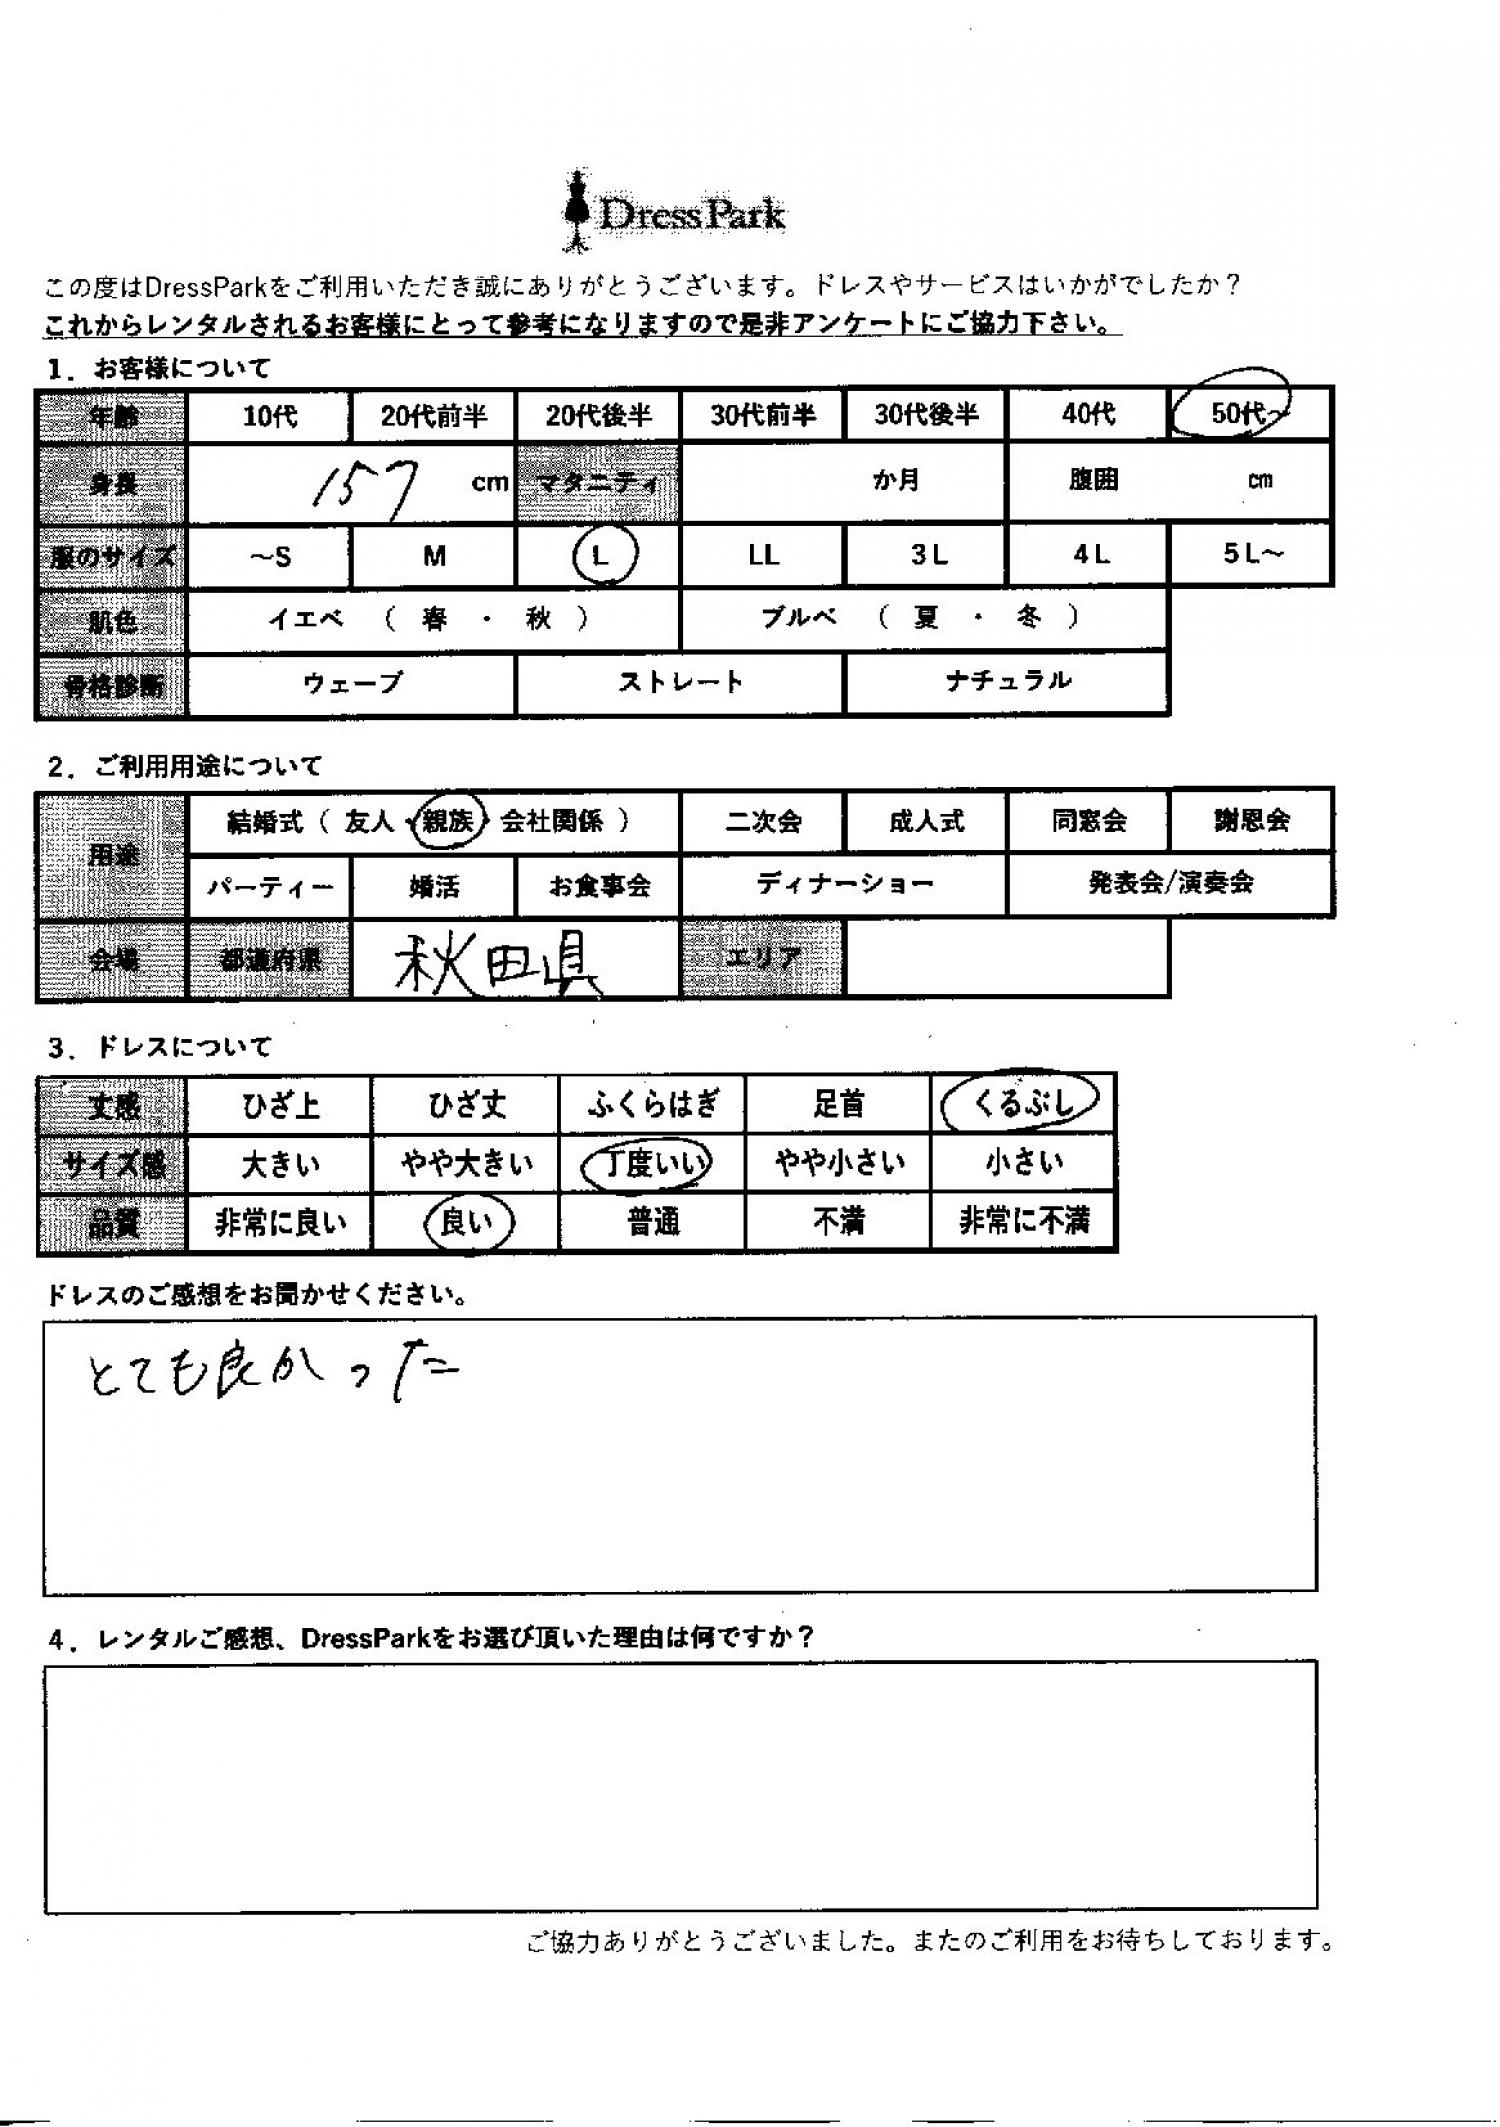 DressPark
この度はDressParkをご利用いただき誠にありがとうございます。ドレスやサービスはいかがでしたか？
これからレンタルされるお客様にとって参考になりますので是非アンケートにご協力下さい。
1．お客様について
年齢 10代 20代前半 20代後半 30代前半 30代後半 40代 50代～
身長 157 cm マタニティ か月 腹囲 cm
服のサイズ ～S M L LL 3L 4L 5L～
肌色 イエベ （ 春 ・ 秋 ） ブルベ （ 夏 ・ 冬 ）
骨格診断 ウェーブ ストレート ナチュラル
2．ご利用用途について
用途 結婚式（ 友人・親族・会社関係 ） 二次会 成人式 同窓会 謝恩会
パーティー 婚活 お食事会 ディナーショー 発表会/演奏会
会場 都道府県 秋田県 エリア
3．ドレスについて
丈感 ひざ上 ひざ丈 ふくらはぎ 足首 くるぶし
サイズ感 大きい やや大きい 丁度いい やや小さい 小さい
品質 非常に良い 良い 普通 不満 非常に不満
ドレスのご感想をお聞かせください。
とても良かった
4．レンタルご感想、DressParkをお選び頂いた理由は何ですか？
ご協力ありがとうございました。またのご利用をお待ちしております。